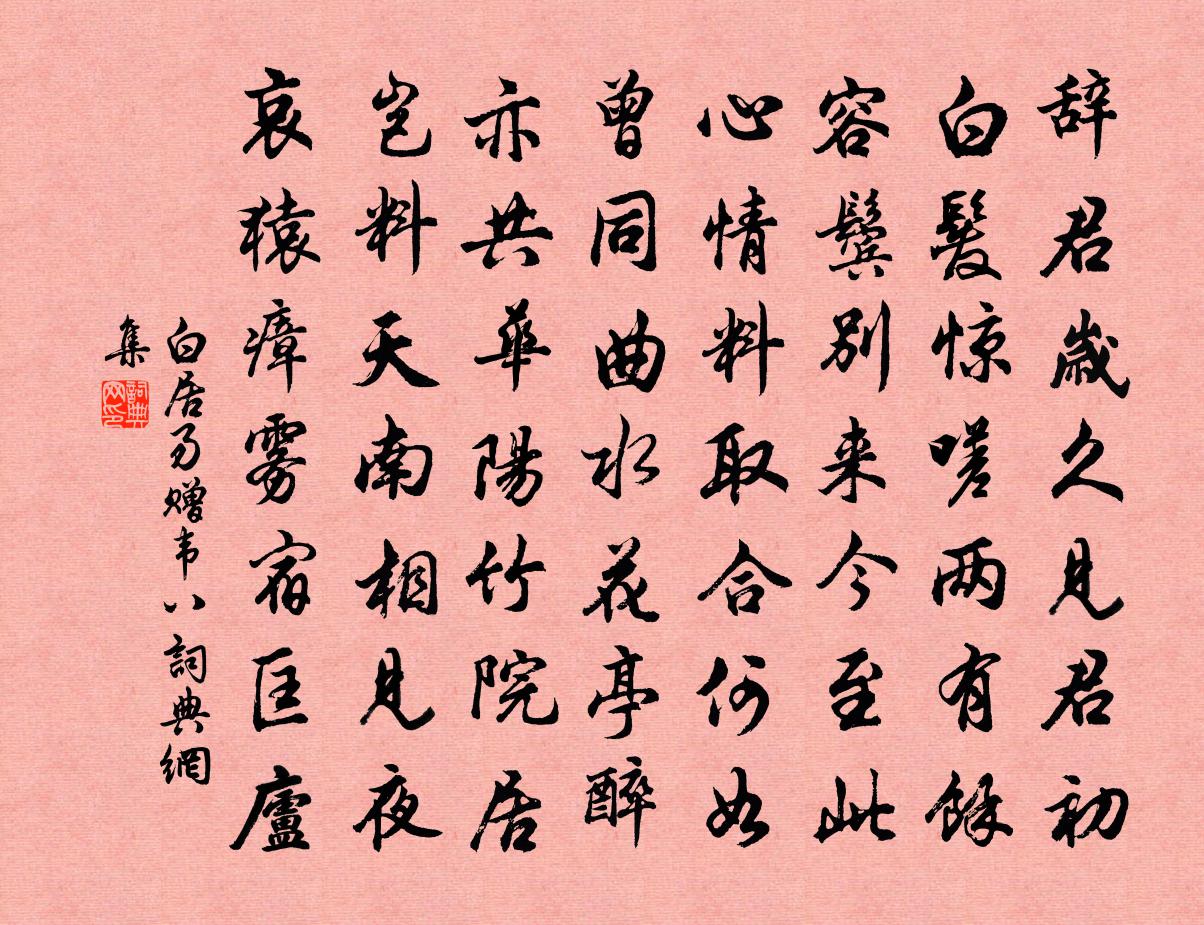 辞君歳久見君初
白髮惊嗟两有餘
容鬢别来今至此
心情料取合何如
曾同曲水花亭醉
亦共華陽竹院居
岂料天南相見夜
哀猿瘴雾宿匡廬
白居易赠韦八詞典網
集
詞典网印